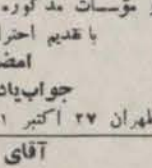 مؤسسات مذکوره
با تقدیم احترا
امضا
جواب یاد
طهران ۲۷ اکتبر ۱
آقای